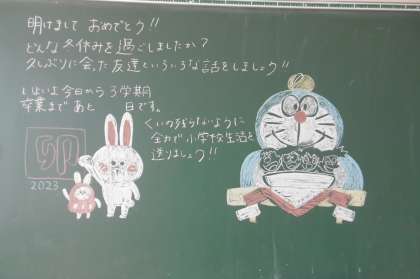 明けまして おめでとう!!
どんな冬休みを過ごしましたか?
久しぶりに会った友達といろいろな話をしましょう!!
いよいよ今日から3学期
卒業まで あと　　日です。
くいの残らないように
全力で小学校生活を
送りましょう!!
卯
2023